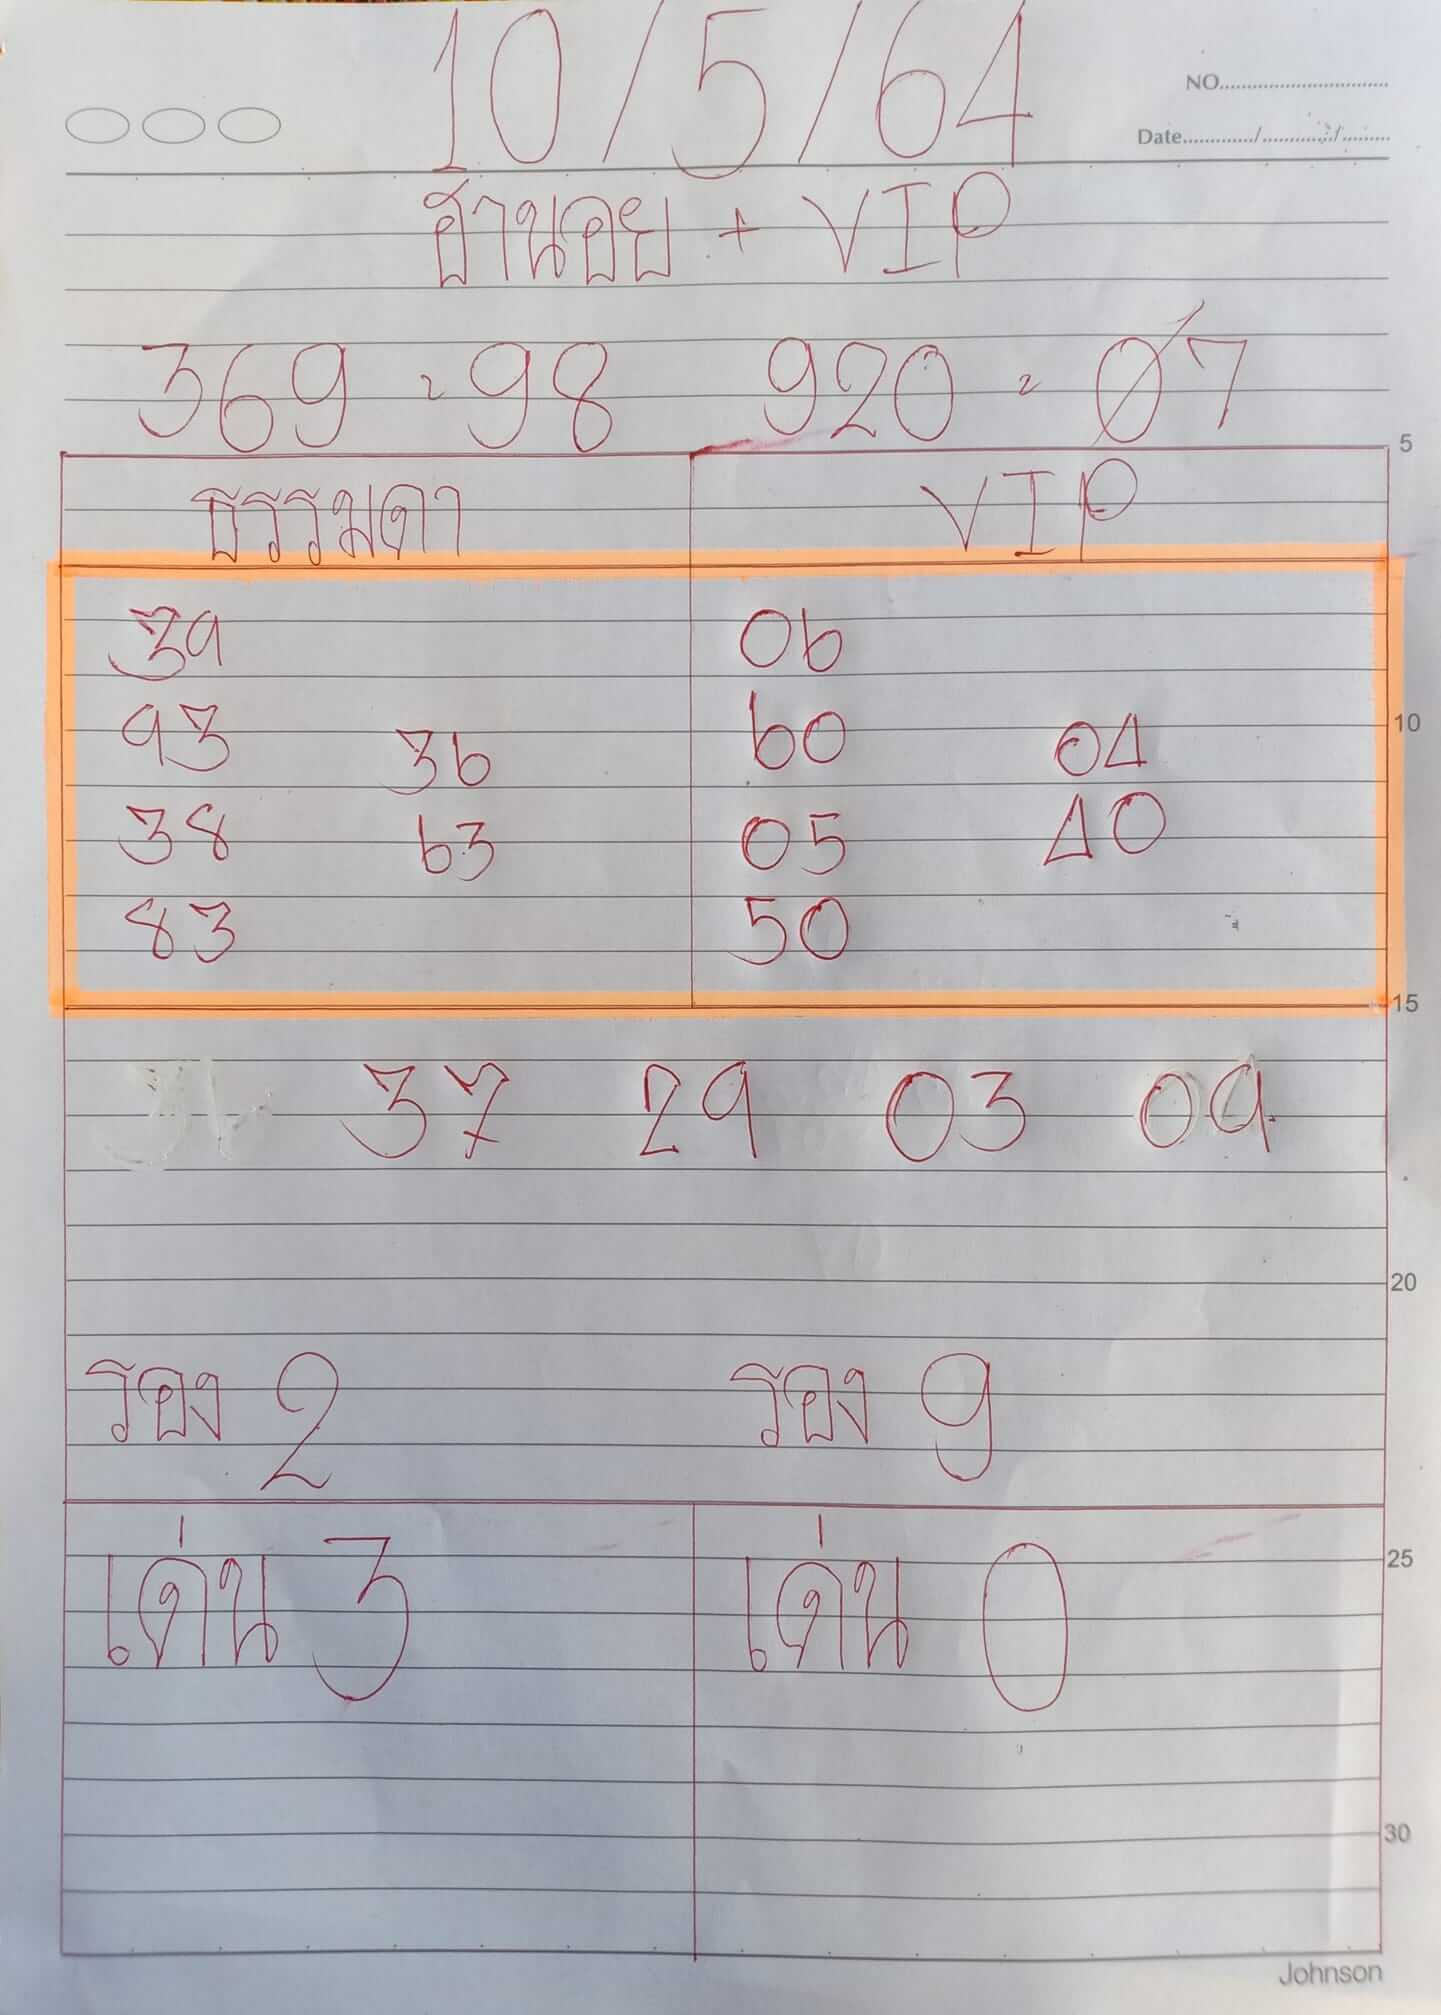 10/5/64
NO.
Date ........../........../..........
ฮานอย + VIP
369 = 98 920 = 07
5
ธรรมดา VIP
39 06
93 36 60 04 10
38 63 05 40
83 50
15
37 29 03 09
20
รอง 2 รอง 9
เด่น 3 เด่น 0
25
30
Johnson